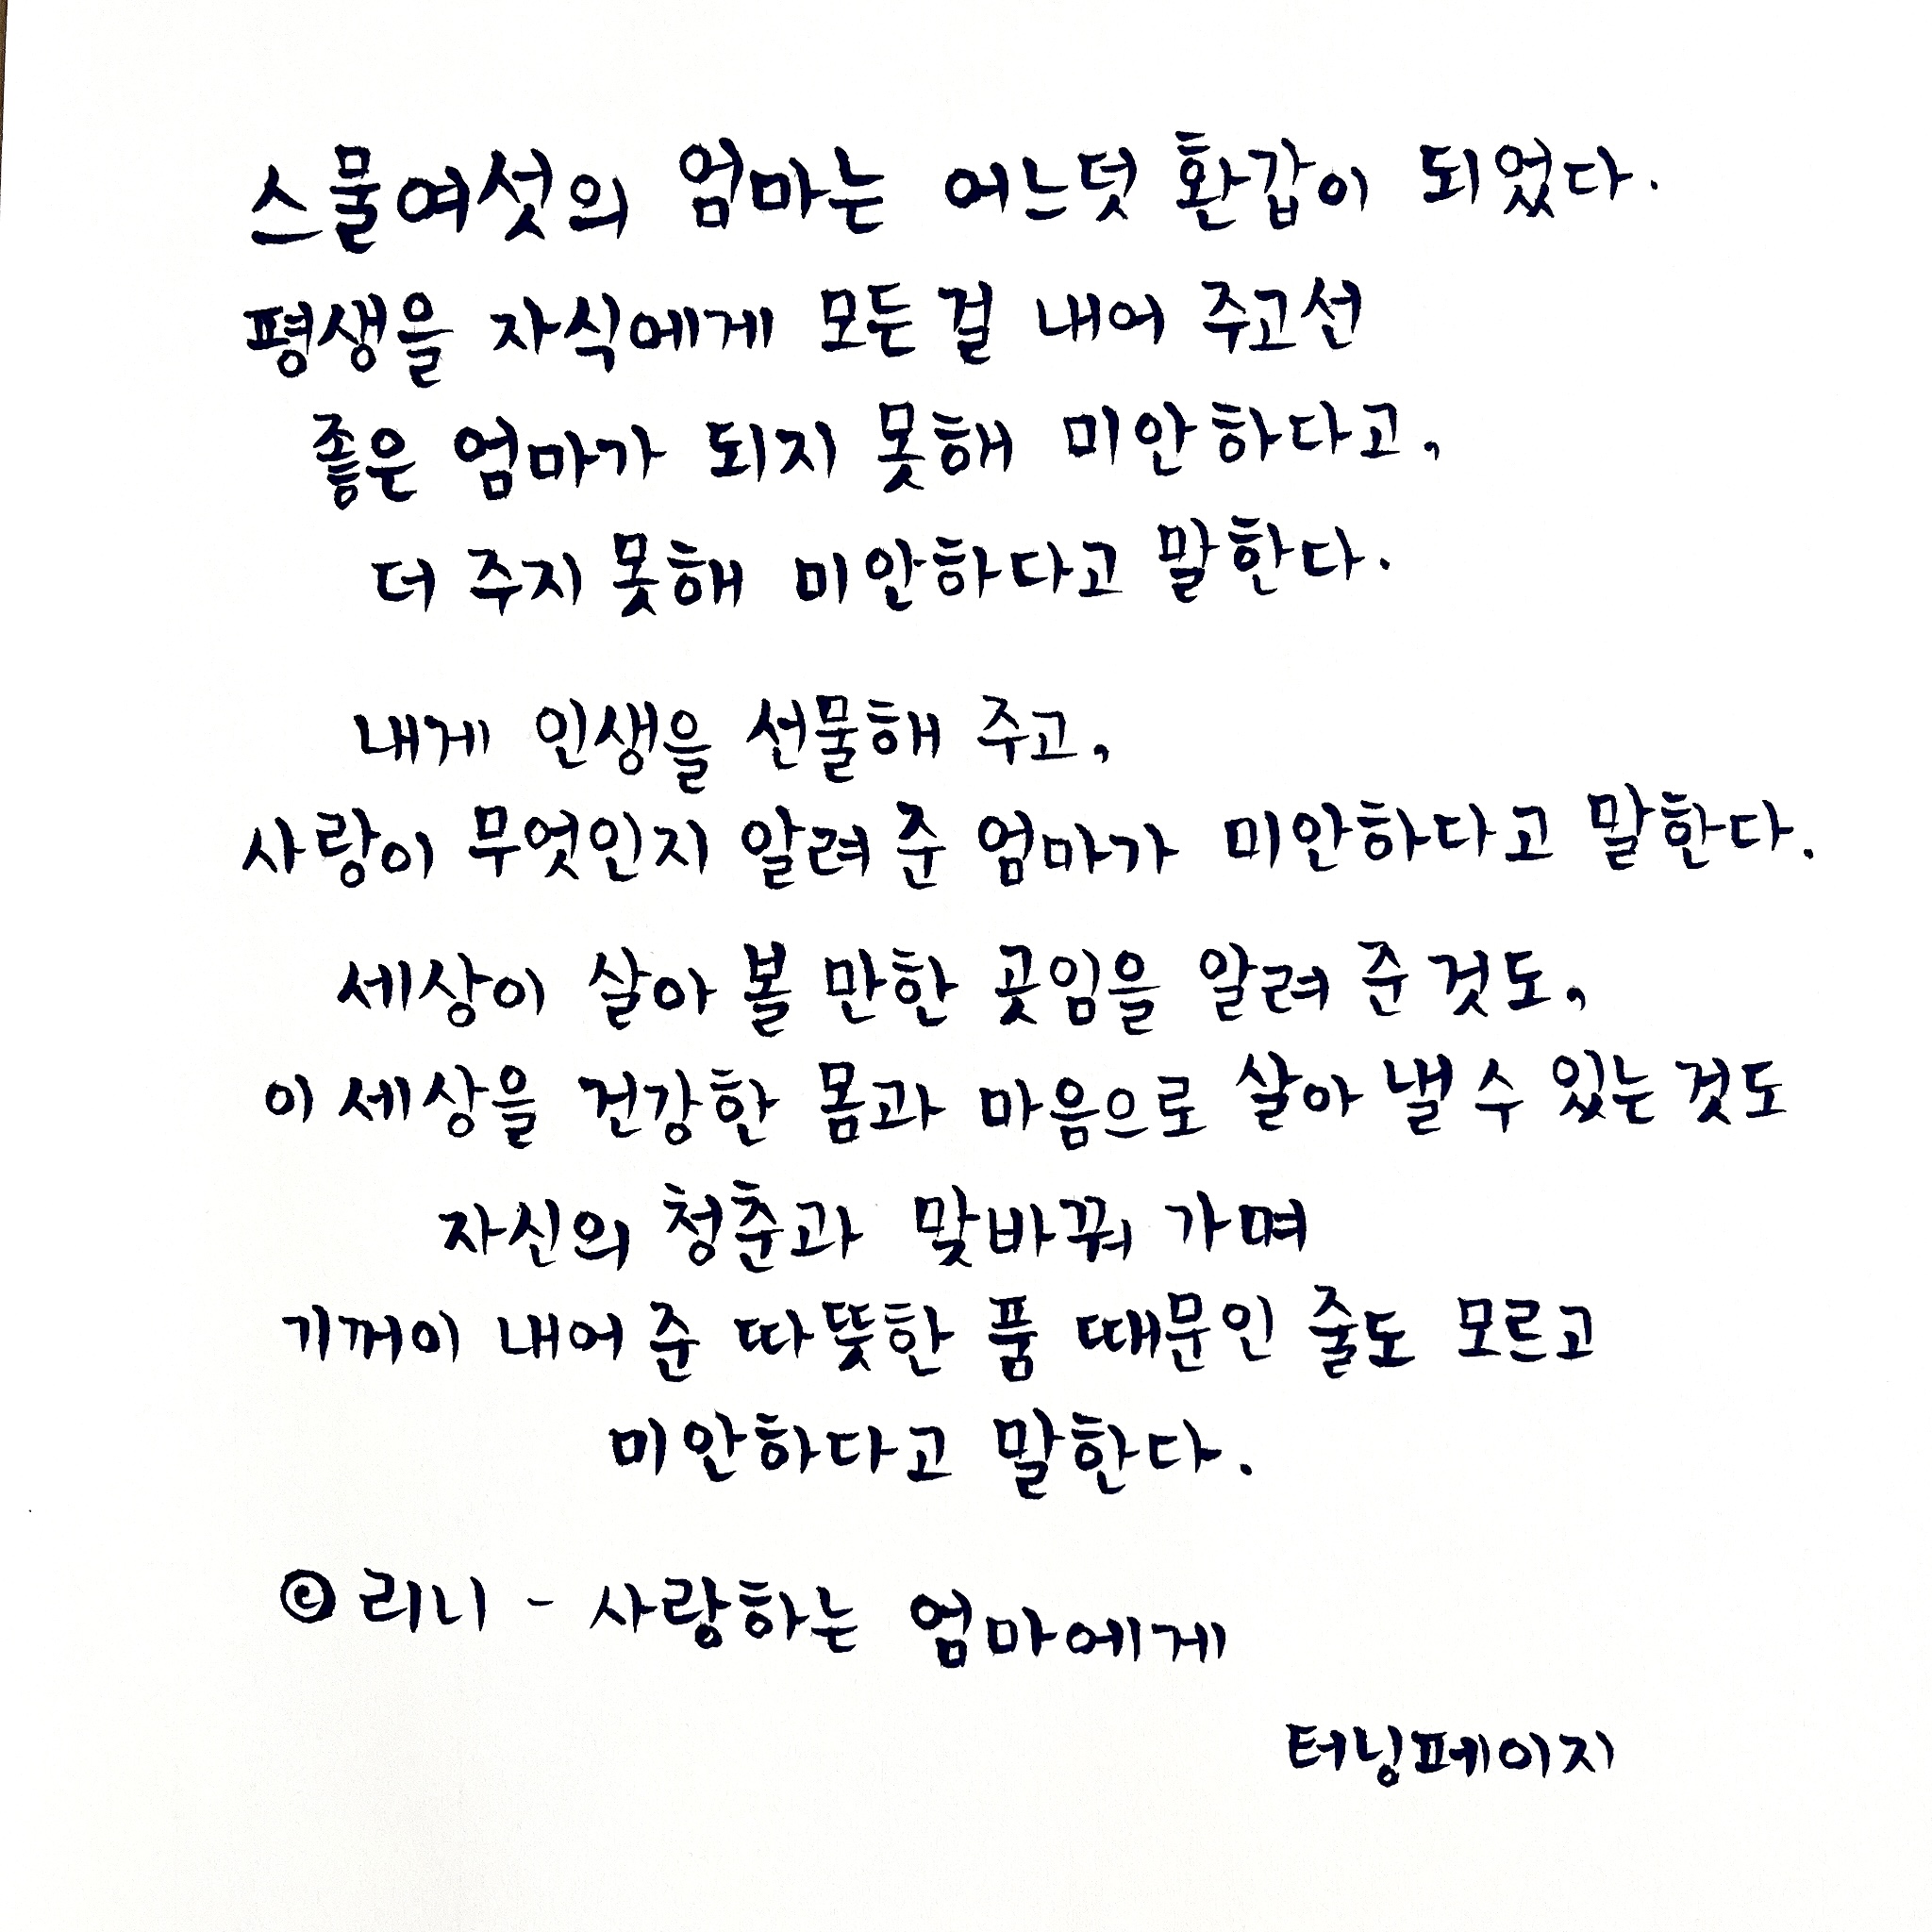 스물여섯의 엄마는 어느덧 환갑이 되었다.
평생을 자식에게 모든 걸 내어 주고선
좋은 엄마가 되지 못해 미안하다고,
더 주지 못해 미안하다고 말한다.
내게 인생을 선물해 주고,
사랑이 무엇인지 알려 준 엄마가 미안하다고 말한다.
세상이 살아 볼 만한 곳임을 알려 준 것도,
이 세상을 건강한 몸과 마음으로 살아 낼 수 있는 것도
자신의 청춘과 맞바꿔 가며
기꺼이 내어 준 따뜻한 품 때문인 줄도 모르고
미안하다고 말한다.
© 리니 - 사랑하는 엄마에게
터닝페이지